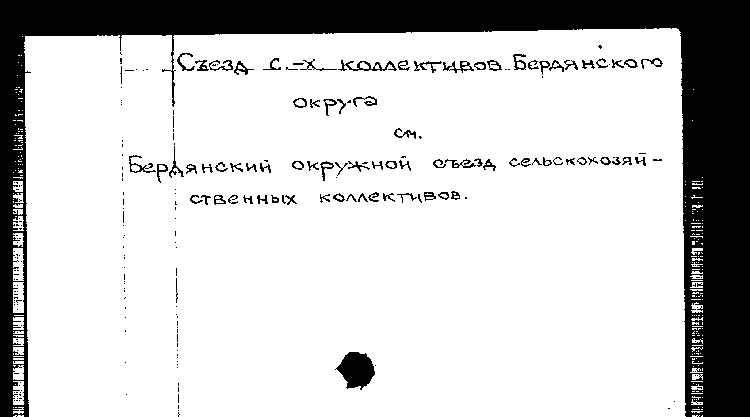 Съезд с.-х. коллективов Бердянского
округа
см.
Бердянский окружной съезд сельскохозяй-
ственных коллективов.